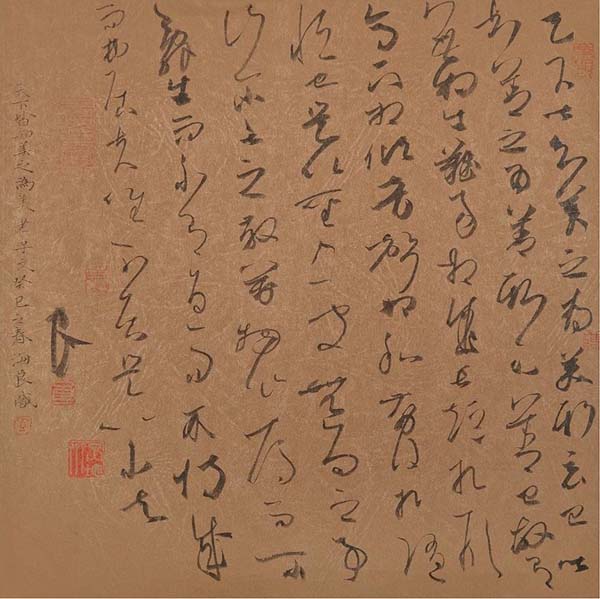 天下皆知美之為美斯惡已皆
知善之為善斯不善已故有
無相生難易相成長短相形
高下相傾音聲相和前後相隨
恒也是以聖人處無為之事
行不言之教萬物作焉而不
辭生而不有為而不恃成
而弗居夫唯不居是以不去
良
天下皆知美之為美老子文癸巳之春海良